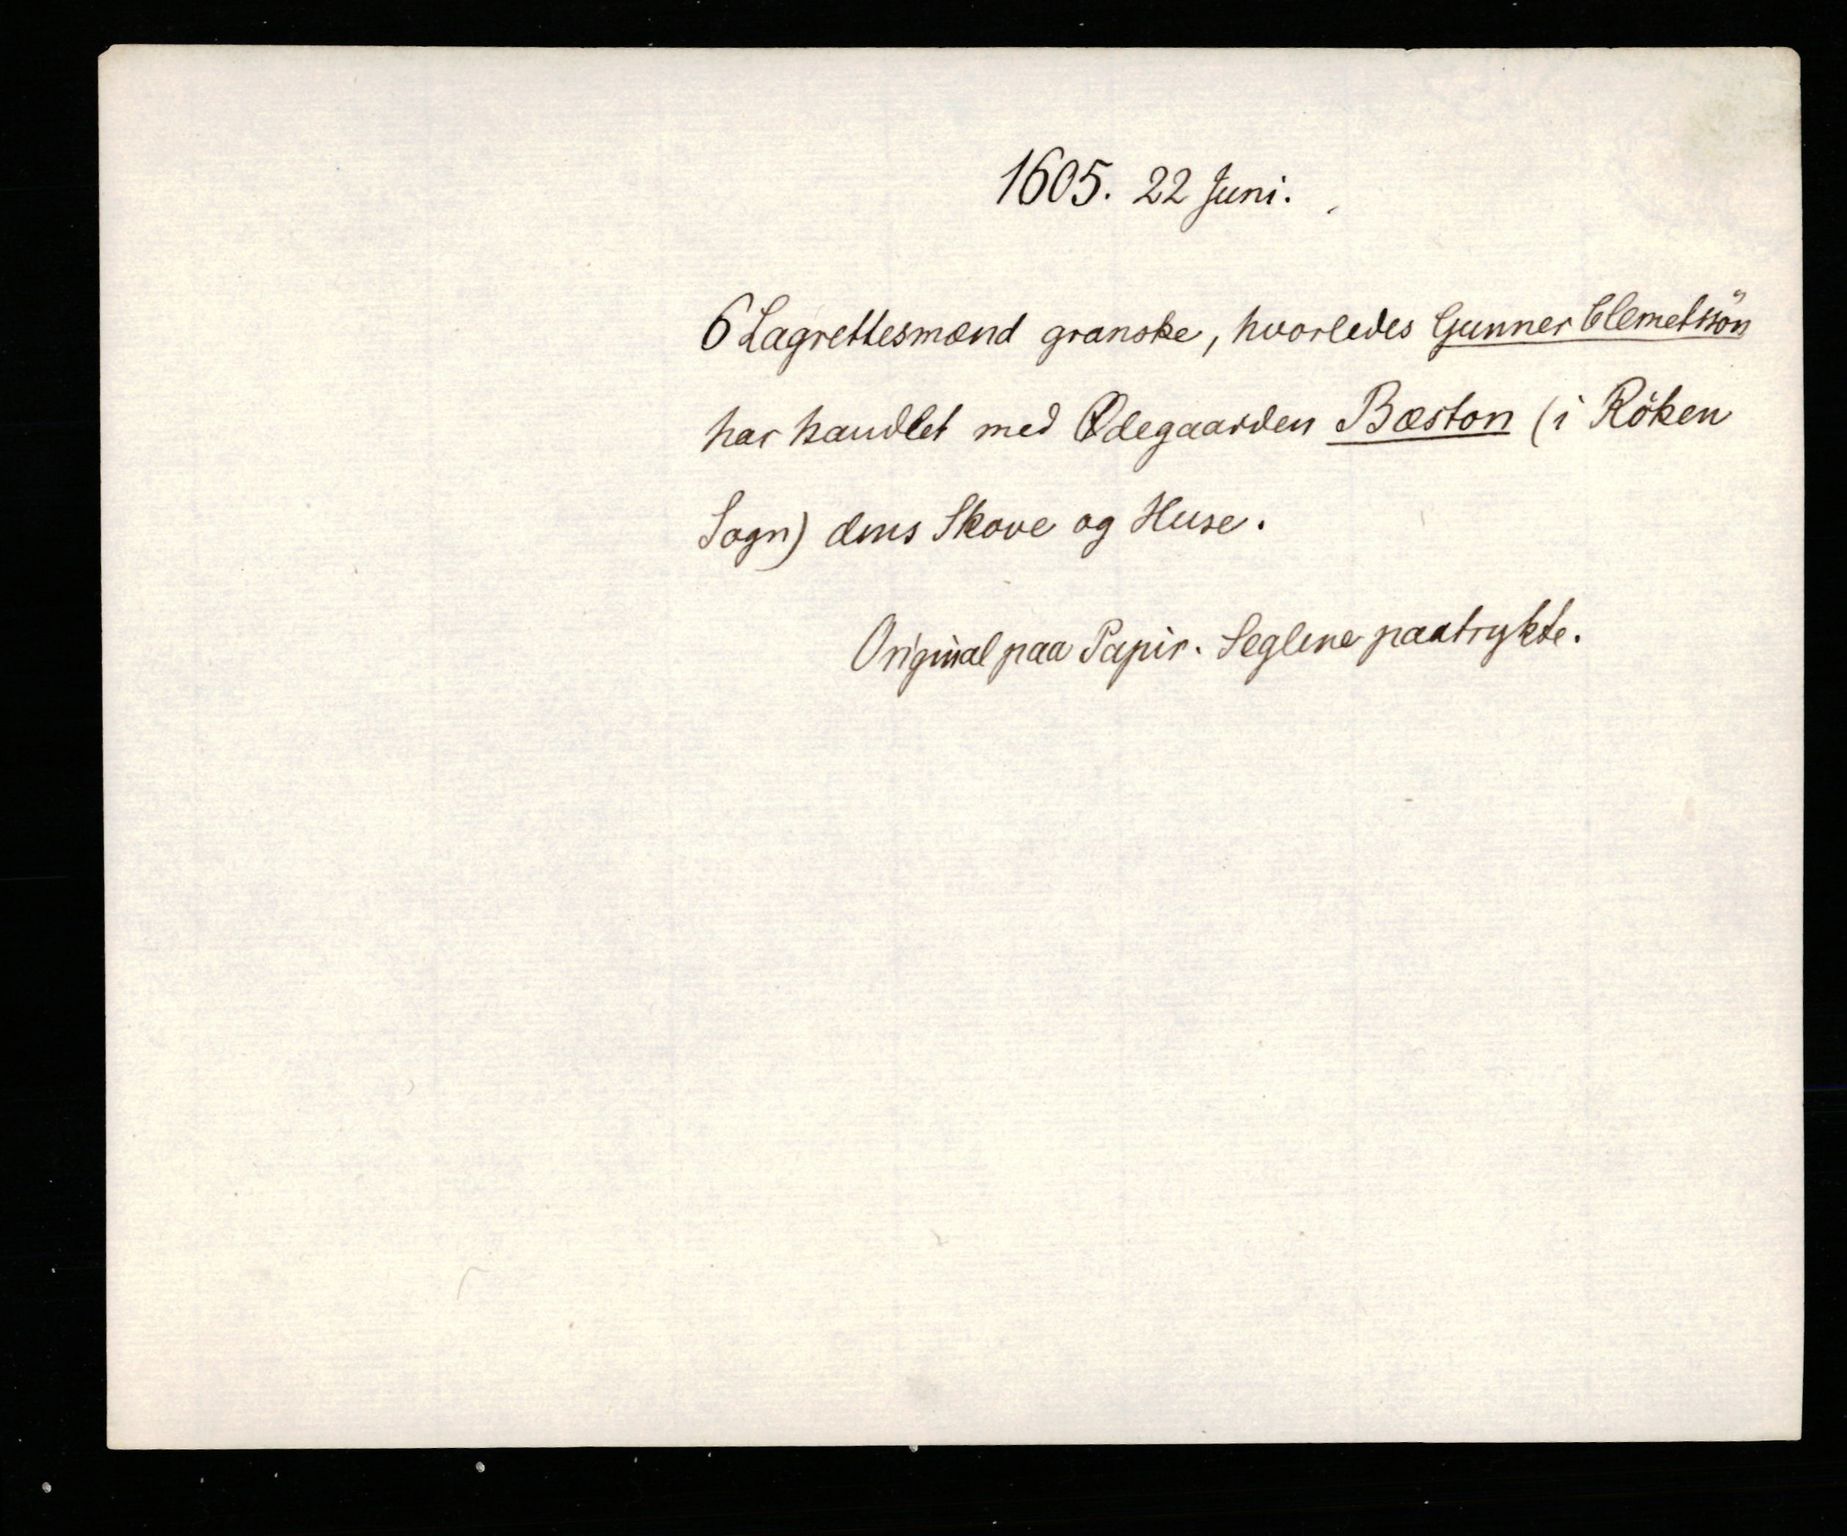 1605. 22 Juni.
6 Lagrettesmænd granske, hvorledes Gunner Clemetssön
har handlet med Ødegaarden Bæston (i Röken
Sogn) dens Skove og Huse.
Original paa Papir. Seglene paatrykte.